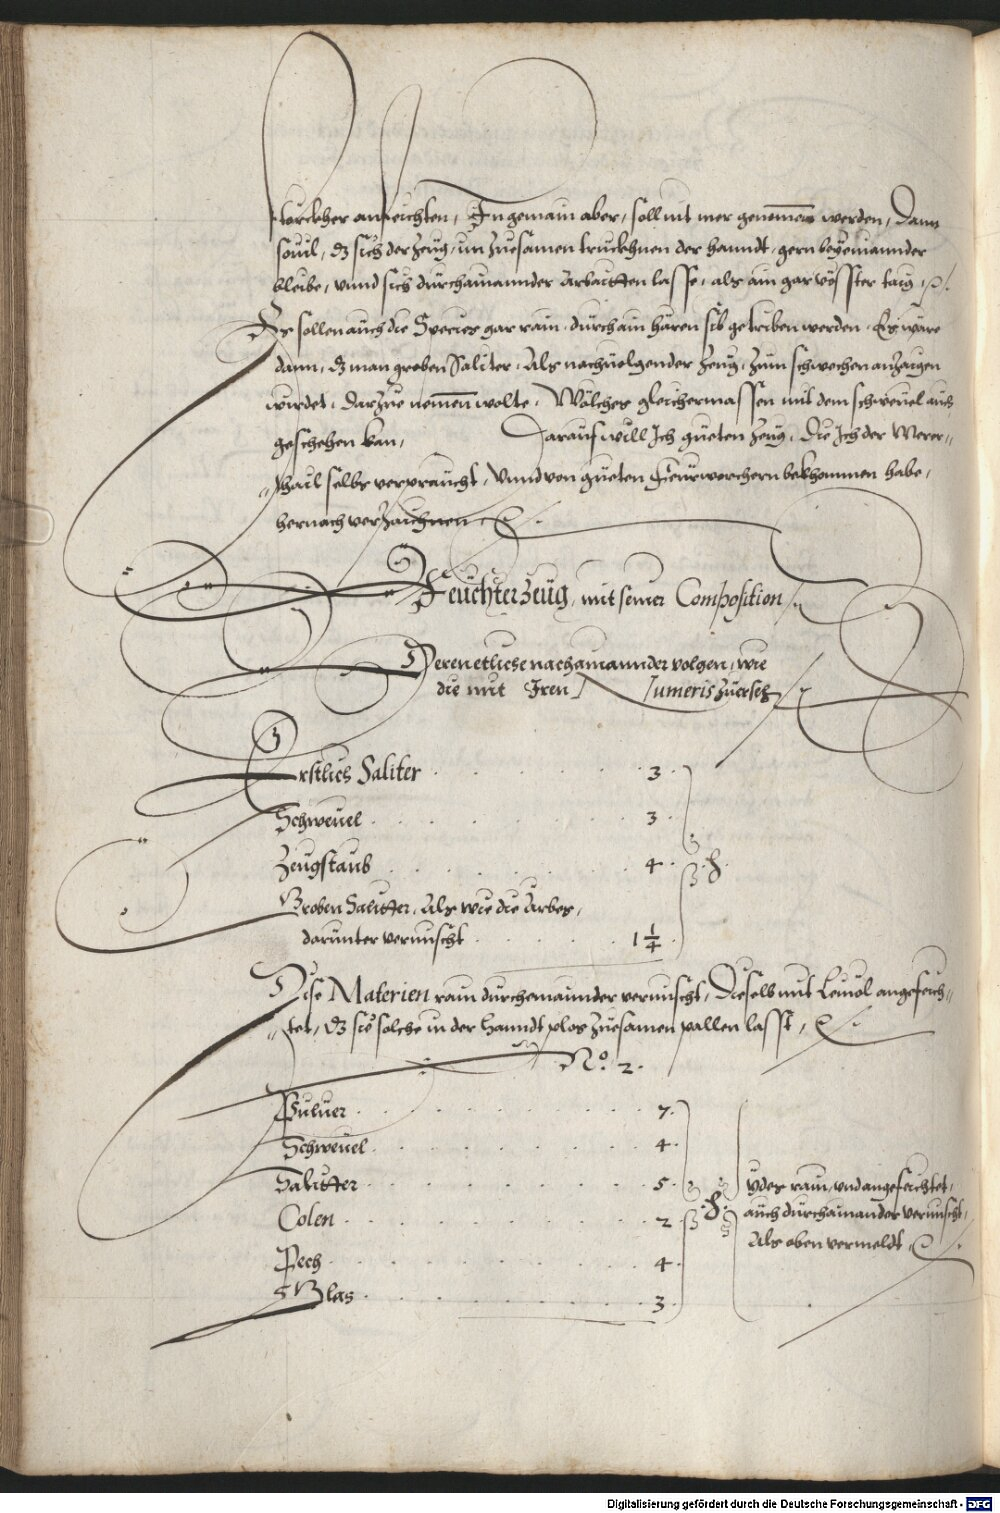 storckher anfeichten, In gemain aber, soll nit mer genomen werden, Dann
souil, dz sich der Zeug, im Zuesamen truckhnen der hanndt, gern beyeinannder
bleibe, vnnd sich durchainannder Arbaitten lasse, als ain gar vösster taig,
Es sollen auch die Species gar rain, durch ain hären sib getriben werden, Es wäre
dann, dz man groben Saliter, Als nachuolgender Zeug, Zum schwechen anzaigen
wirdet, darzue nemen wolte, Wölches gleichermassen mit dem schweuel auch
geschehen kan, Darauf will Ich gueten Zeug, die Ich der Merer-
thail selbs verpraucht, Vnnd von gueten Feurwerchern bekhommen habe,
hernach verzaichnen
Feuchter Zeug, mit seiner Composition
Deren etliche nachainannder volgen, wie
die mit Iren Numeris Zuersehen
Erstlich Saliter 3
Schweuel 3
Zeugstaub 4
Groben Salitter, Als wie die Arbes,
darunter vermischt 1 1/4
Dise Materien rain durcheinannder vermischt, Dieselb mit Leinöl angefeich-
tet, dz sich solche in der Hanndt plos Zuesamen pallen lasst,
No. 2.
Puluer 7
Schweuel 4
Salitter 5
Colen 2
Pech 4
Glas 3
Ydes rain, vnd angefeichtet,
auch durchainander vermischt,
Als oben vermeldt
Digitalisierung gefördert durch die Deutsche Forschungsgemeinschaft - DFG